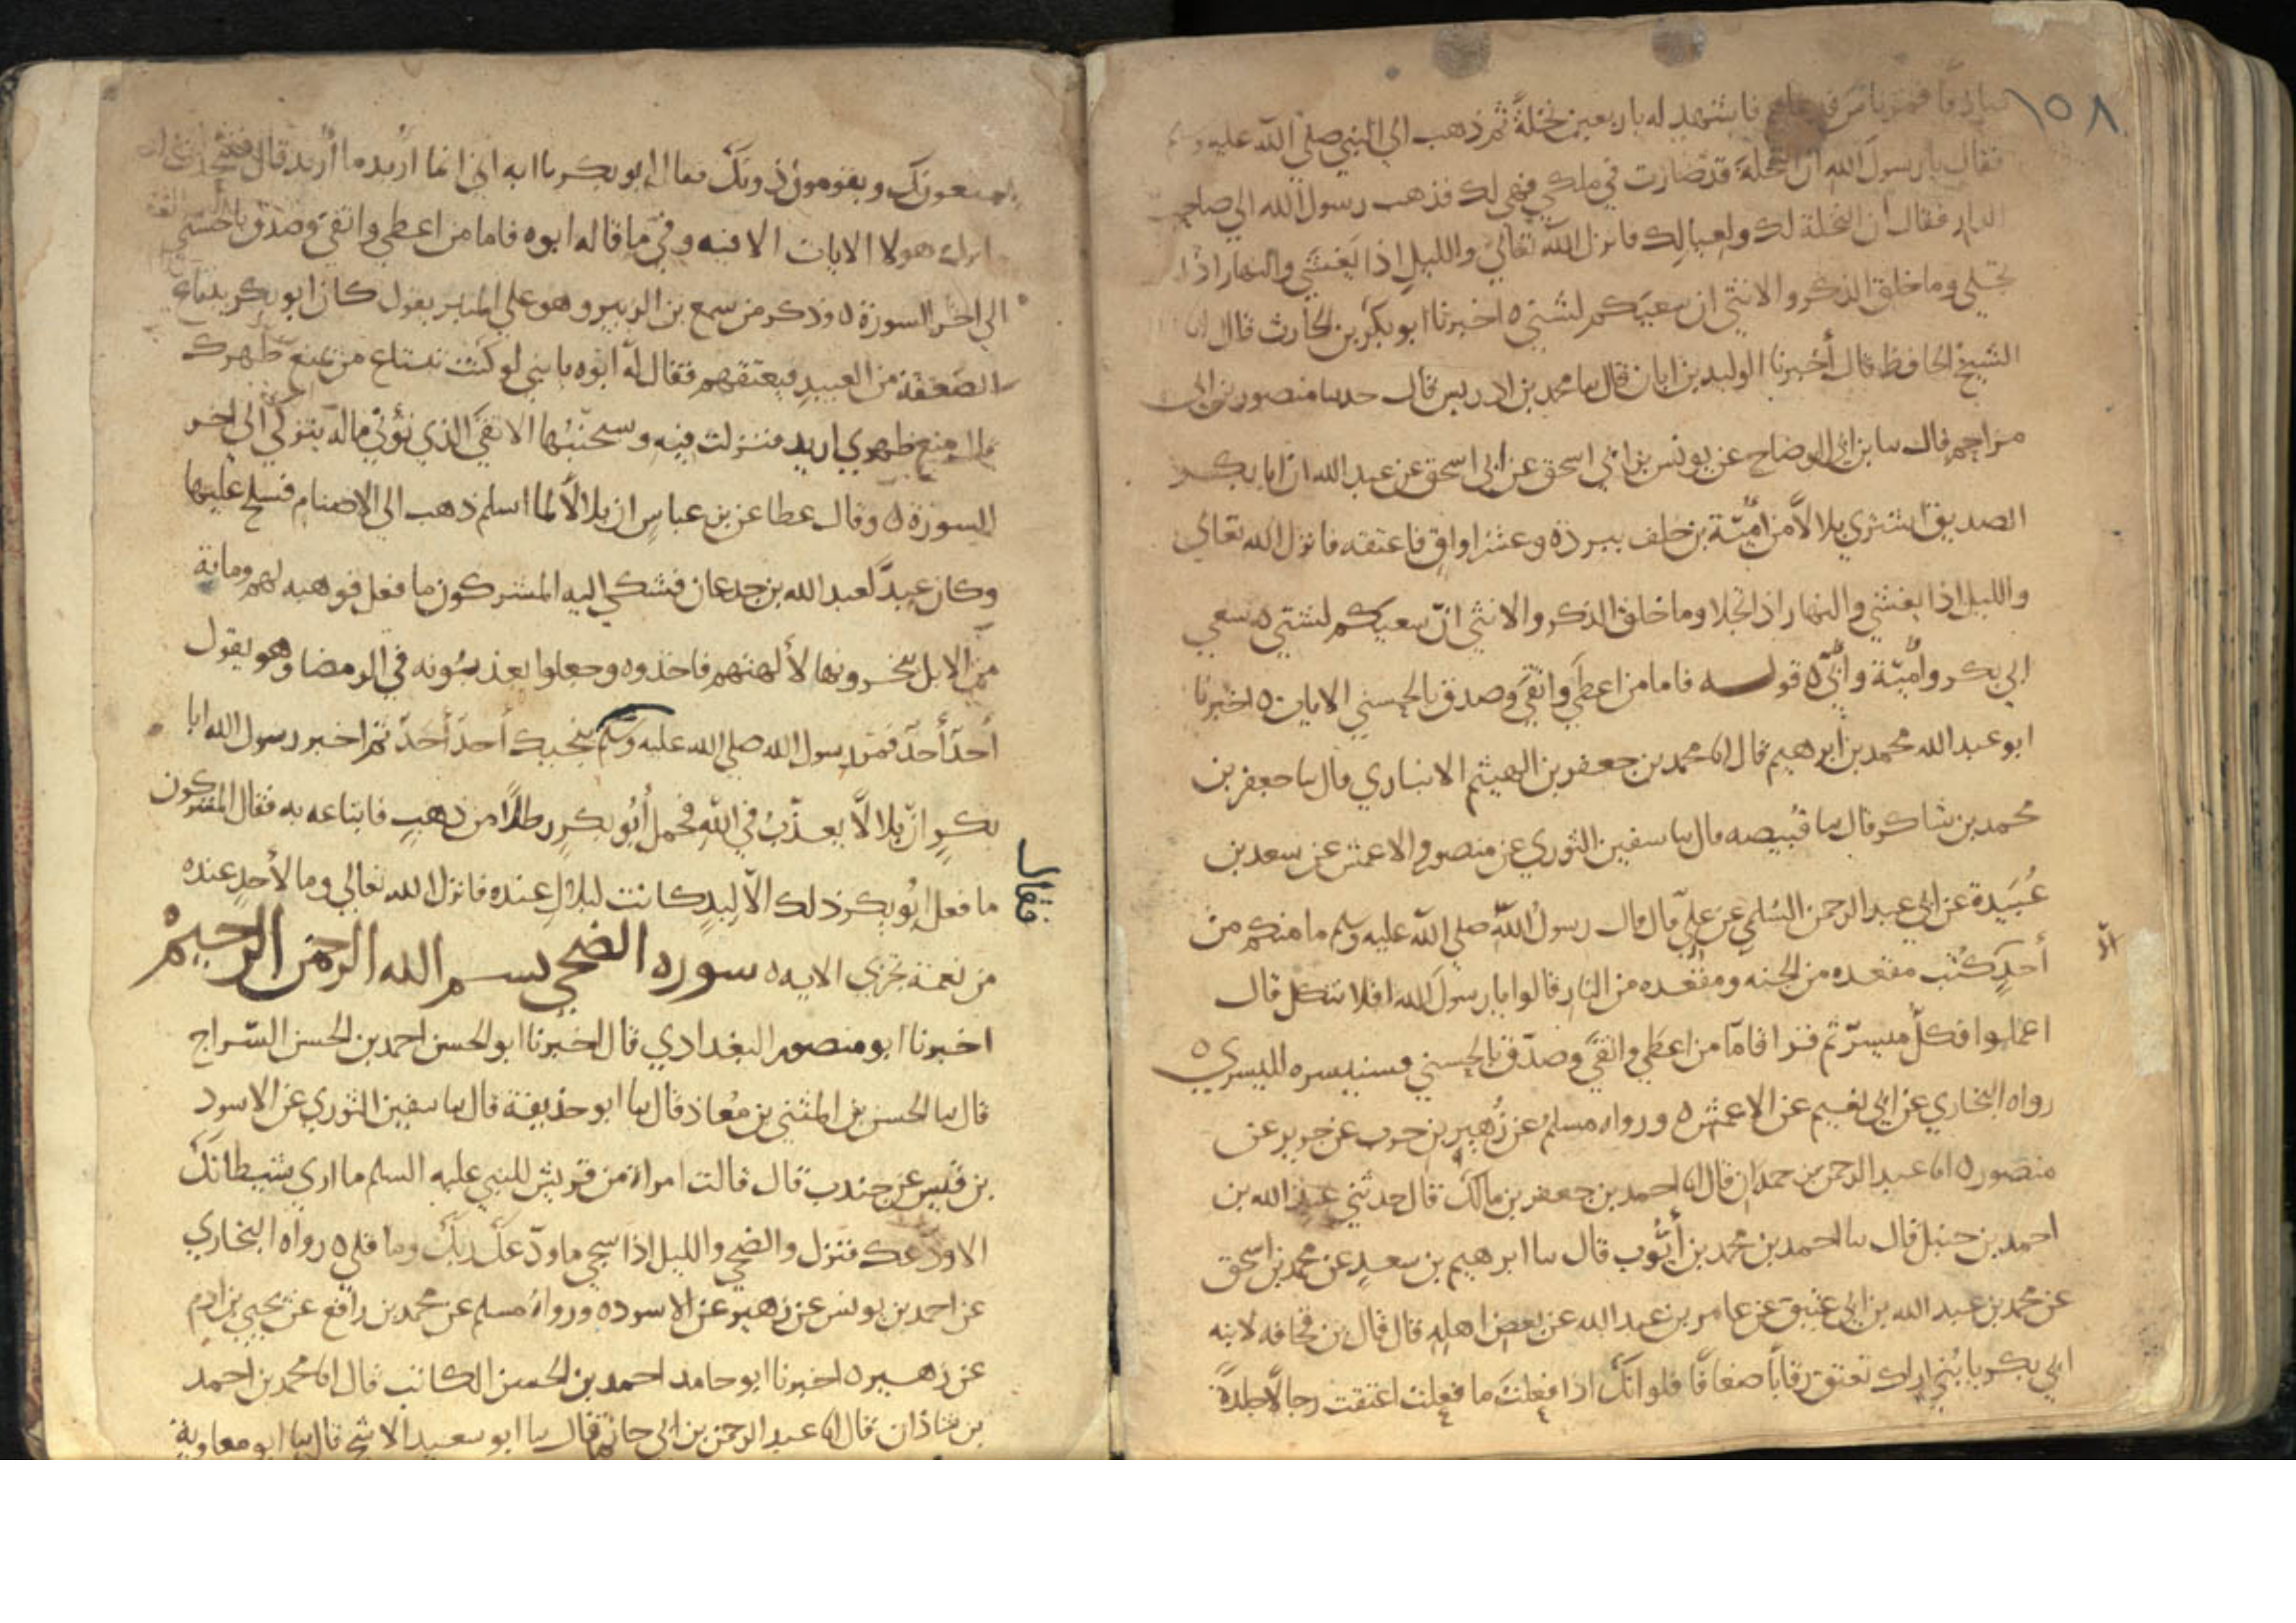 ١٥٨
فاشهد له باربعين نخلةً ثم ذهب الي النبي صلي الله عليه وسلم
فقال يا رسول الله ان النخلة قد صارت في ملكي فهي لك فذهب رسول الله الي صاحب
الدار فقال ان النخلة لك ولعيالك فانزل الله تعالي والليل اذا يغشي والنهار اذا
تجلي وما خلق الذكر والانثي ان سعيكم لشتي ه اخبرنا ابو بكر بن الحارث قال انا
الشيخ الحافظ قال أخبرنا الوليد بن ابان قال سا محمد بن ادريس قال حدسا منصور بن ابي
مزاحم قال سا بن ابي الوضاح عن يونس بن ابي اسحق عن ابي اسحق عن عبد الله ان ابا بكر
الصديق اشتري بلالاً من أميّة بن خلف ببردة وعشر اواقٍ فاعتقه فانزل الله تعالي
والليل اذا يغشي والنهار اذا تجلا وما خلق الذكر والانثي انّ سعيكم لشتي ه سعي
ابي بكر وأميّة وأبيّ ه قوله فاما من اعطي واتقي وصدق بالحسني الايات ه اخبرنا
ابو عبد الله محمد بن ابرهيم قال انا محمد بن جعفر بن الهيثم الانباري قال سا جعفر بن
محمد بن شاكر قال سا قبيصه قال سا سفين الثوري عن منصور والاعمش عن سعد بن
عُبَيدة عن ابي عبد الرحمن السُلمي عن عليّ قال قال رسول اللّه صلي الله عليه وسلم ما منكم من
أحدٍ كُتب مقعده من الجنه ومقعده من النار قالوا يا رسول الله افلا نتكل قال
الّا
اعملوا فكلّ ميسرّ ثم قرا فامّا من اعطي واتقي وصدّق بالحسني فسنيسره لليسري ه
رواه البخاري عن ابي نعيم عن الاعمش ه ورواه مسلم عن زُهير بن حرب عن جرير عن
منصور ه انا عبد الرحمن بن حمدان قال انا احمد بن جعفر بن مالك قال حدثني عبد الله بن
احمد بن حنبل قال سا احمد بن محمد بن أيّوب قال سا ابرهيم بن سعدٍ عن محمد بن اسحق
عن محمد بن عبد الله بن ابي عتيق عن عامر بن عبد الله عن بعض اهله قال قال بن قحافه لابنه
ابي بكر يا بُني اراك تعتق رقاباً ضعافاً فلو انّك اذا فعلتَ ما فعلت اعتقت رجالاً جلدةً
يمنعونك ويقومون دونك فقال ابو بكر يا ابه اني انما اُريد ما اُريد قال
هولا الايات الا فيه وفي ما قاله ابوه فاما من اعطي واتقي وصدق بالحسني
الي اخر السورة ه وذكر من سمع بن الزبير وهو علي المنبر يقول كان ابو بكر يبتاع
الضعفة من العبيد فيعتقهم فقال له ابوه يا بني لو كنت تبتاع من يمنع ظهرك
قال منع ظهري اريد فنزلت فيه وسيجنّبها الاتقي الذي يؤتي ماله يتزكي الي اخر
السورة ه وقال عطا عن بن عباسٍ ان بلالاً لما اسلم ذهب الي الاصنام فسلح عليها
وكان عبدً لعبد الله بن جدعان فشكي اليه المشركون ما فعل فوهبه لهم ومائة
من الابل ينحرونها لألهتهم فاخذوه وجعلوا يعذبونه في الرمضا وهو يقول
أحدٌ أحدٌ فمر رسول الله صلي الله عليه وسلم ينجيك أحدٌ أحدٌ ثم اخبر رسول الله ابا
بكرٍ انّ بلالاً يعذّبُ في اللّه فحمل أبُو بكرٍ رطلاً من ذهبٍ فابتاعه به فقال المشركون
فقال
ما فعل ابُو بكر ذلك الّا ليدٍ كانت لبلالٍ عنده فانزل الله تعالي وما لأحدٍ عنده
من نعمة تجزي الايه ه سوره الضحي بسم الله الرحمن الرحيم
اخبرنا ابو منصور البغدادي قال اخبرنا ابو الحسن احمد بن الحسن السّراج
قال سا الحسن بن المثني بن مُعاذ قال سا ابو حذيفة قال سا سفين الثوري عن الاسود
بن قيس عن جندب قال قالت امراة من قريش للنبي عليه السلم ما اري شيطانك
الا ودّعك فنزل والضحي والليل اذا سجي ما ودّعك ربّك وما قلي ه رواه البخاري
عن احمد بن يونس عن زهير عن الاسود ه ورواهُ مسلم عن محمد بن رافع عن يحيي بن ادم
عن زهير ه اخبرنا ابو حامد احمد بن الحسن الكاتب قال انا محمد بن احمد
بن شاذان قال انا عبد الرحمن بن ابي حاتم قال سا ابو سعيد الاشج قال سا ابو معاوية